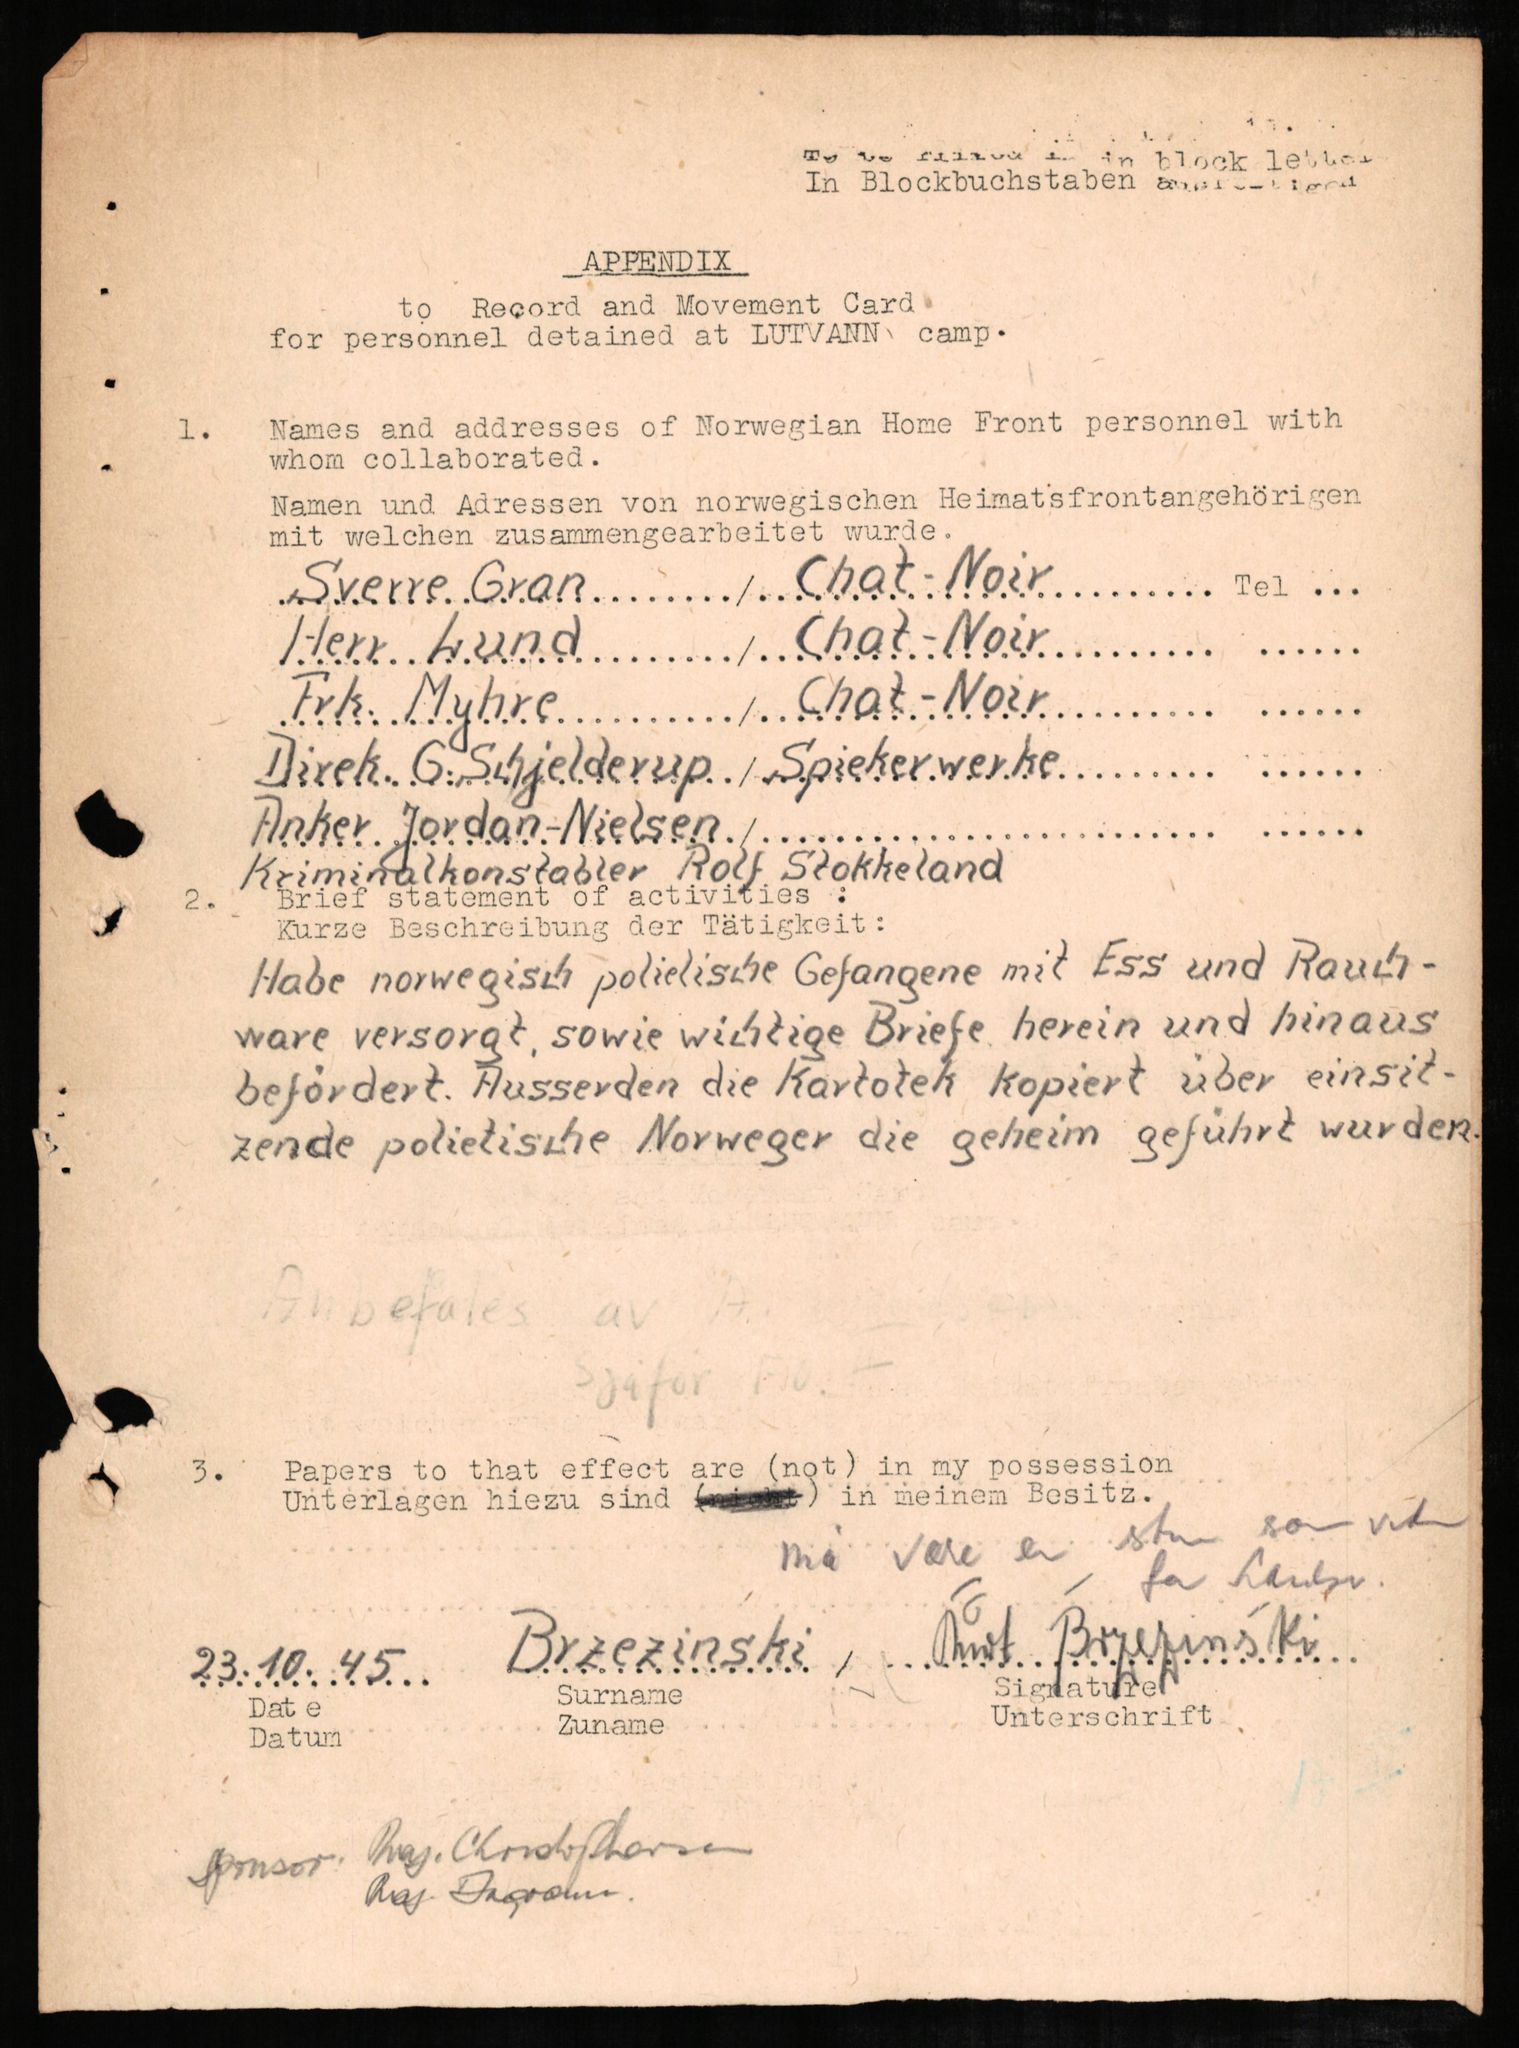 To be filled in in block letter
In Blockbuchstaben ausfertigen
APPENDIX
to Record and Movement Card
for personnel detained at LUTVANN camp.
1. Names and addresses of Norwegian Home Front personnel with
whom collaborated.
Namen und Adressen von norwegischen Heimatsfrontangehörigen
mit welchen zusammengearbeitet wurde.
Sverre Gran / Chat-Noir Tel ...
Herr Lund / Chat-Noir
Frk. Myhre / Chat-Noir
Direk. G. Schjelderup / Spiekerwerke
Anker Jordan-Nielsen /
Kriminalkonstabler Rolf Stokkeland
2. Brief statement of activities :
Kurze Beschreibung der Tätigkeit:
Habe norwegisch polietische Gefangene mit Ess und Rauch-
ware versorgt, sowie wichtige Briefe herein und hinaus
befördert. Ausserden die Kartotek kopiert über einsit-
zende polietische Norweger die geheim geführt wurden.
Anbefales av A.
Sjåfør
3. Papers to that effect are (not) in my possession
Unterlagen hiezu sind (nicht) in meinem Besitz.
må være en som
for
23.10.45 Brzezinski / Kurt Brzezinski
Date Surname Signature
Datum Zuname Unterschrift
Sponsor: Christophersen